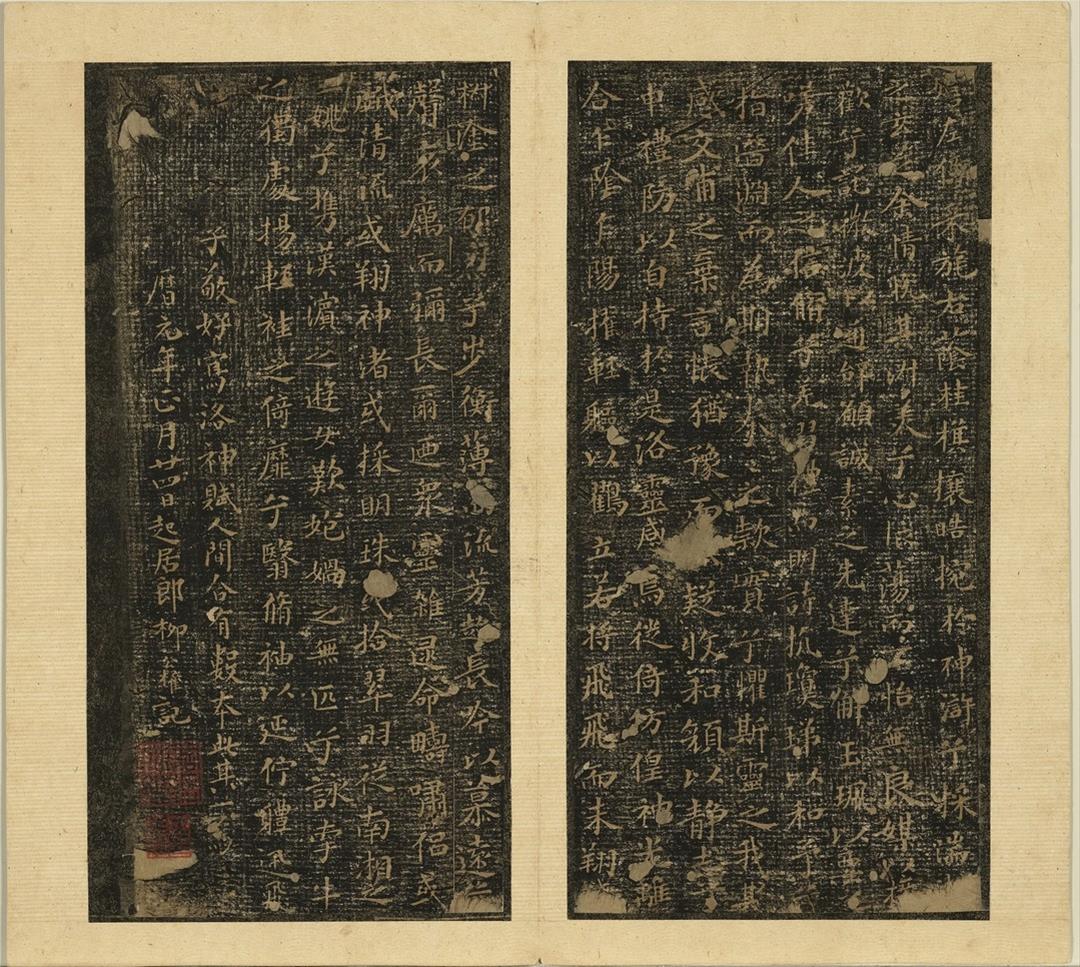 左倚采旄右蔭桂旗攘皓捥於神滸兮採湍
之玄芝余情悅其淑美兮心振蕩而不怡無良媒以接
歡兮託微波以通辭願誠素之先達兮解玉珮以要
嗟佳人之信脩兮羌習禮而明詩抗瓊珶以和予兮
指潛淵而為期執拳之款實兮懼斯靈之我欺
感交甫之棄言悵猶豫而疑收和顏以靜志
申禮防以自持於是洛靈感焉徙倚仿偟神光離
合乍陰乍陽擢輕軀以鶴立若將飛飛而未翔
椒塗之郁烈兮步衡薄而流芳超長吟以慕遠兮
聲哀厲而彌長爾迺眾靈雜遝命疇嘯侶或
戲清流或翔神渚或採明珠或拾翠羽從南湘之
姚兮攜漢濱之遊女歎匏媧之無匹兮詠牽牛
獨處揚輕袿之倚靡兮翳脩袖以延佇體迅飛
子敬好寫洛神賦人間合有數本此其一焉
曆元年正月廿四日起居郎柳公權記